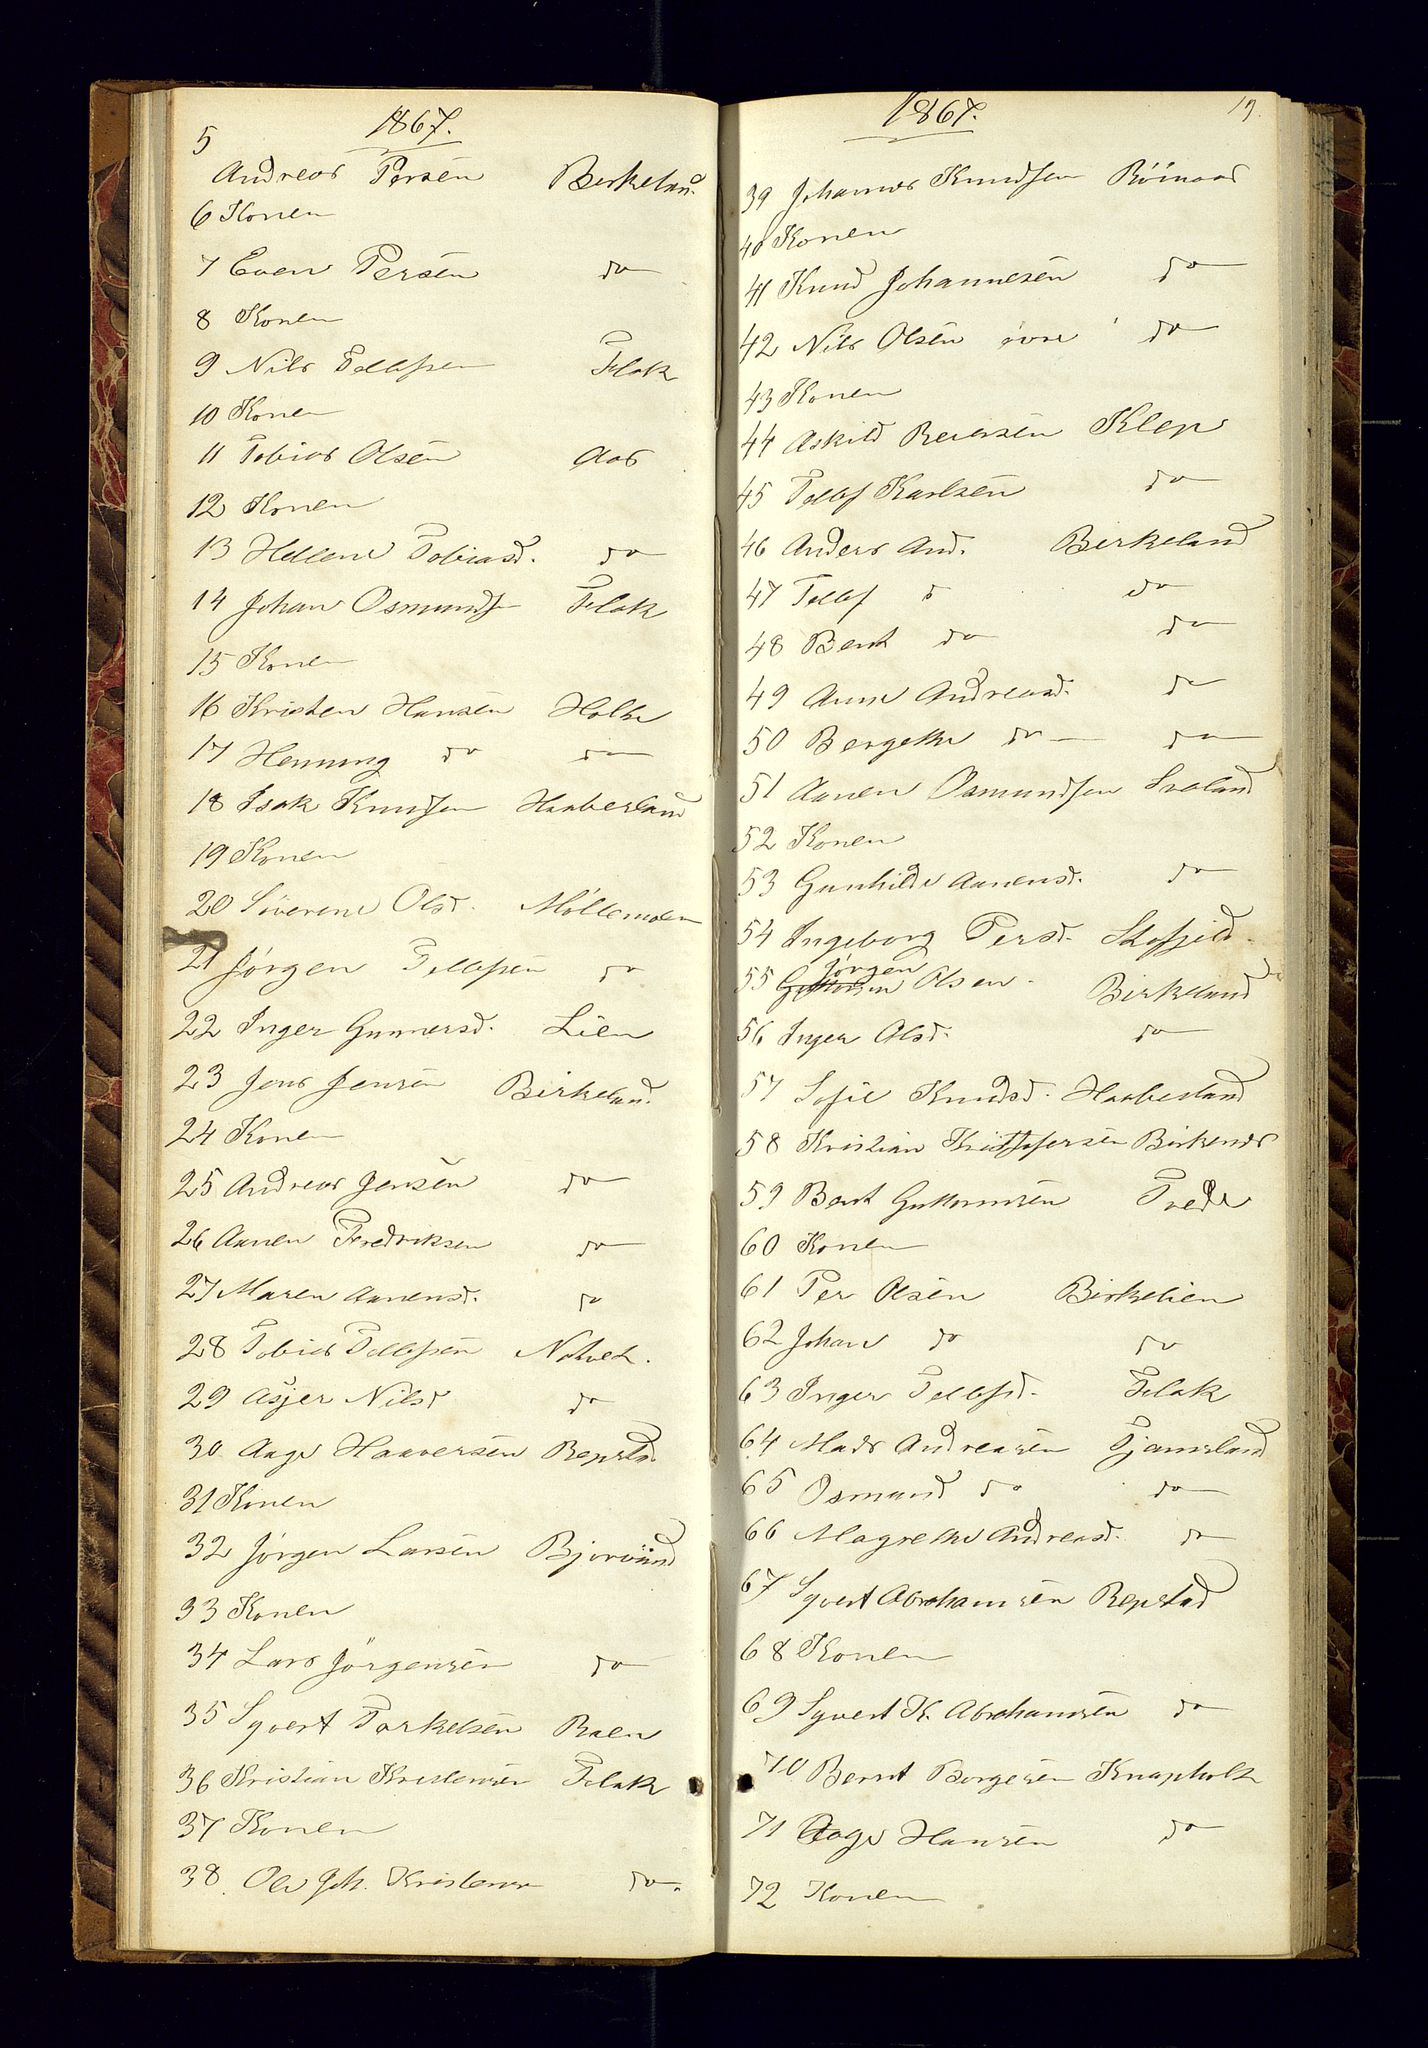 1867.
5 Andreas Persen Birkeland
6 Konen
7 Even Persen do
8 Konen
9 Nils Tellefsen Flak
10 Konen
11 Tobias Olsen Aas
12 Konen
13 Hellene Tobiasd. do
14 Johan Osmunds Flak
15 Konen
16 Kristen Hansen Holte
17 Henning do do
18 Isak Knudsen Haaberland
19 Konen
20 Severene Olsd. Möllemoen
21 Jörgen Tellefsen do
22 Inger Gunnersd. Lien
23 Jens Jensen Birkeland
24 Konen
25 Andreas Jensen do
26 Aanen Fredriksen do
27 Maren Aanensd. do
28 Tobias Tellefsen
29 Asjer Nilsd do
30 Aage Haaversen Repstad
31 Konen
32 Jörgen Larsen
33 Konen
34 Lars Jörgensen do
35 Syvert Torkelsen Roen
36 Kristian Kristensen Flak
37 Konen
38 Ole Joh. Kristensen do.
1867. 19.
39 Johannes Knudsen Röinaas
40 Konen
41 Knud Johannesen do
42 Nils Olsen do
43 Konen
44 Askild Reiersen Klep
45 Tellef Karlsen do
46 Anders And. Birkeland
47 Tellef do do
48 Bent do do
49 Anne Andreasd. do
50 Bergethe do do
51 Aanen Osmundsen Sveland
52 Konen
53 Gunhilde Aanensd. do
54 Ingeborg Persd.
55 Jörgen Olsen Birkeland
56 Inger Olsd. do
57 Sofie Knudsd. Haaberland
58 Kristian Kristofersen Birkenes
59 Bent Guttormsen Tvede
60 Konen
61 Per Olsen Birkelien
62 Johan do do
63 Inger Tellefsd. Flak
64 Mads Andreasen Tjamsland
65 Osmund do do
66 Magrethe Andreasd. do
67 Syvert Abrahamsen Repstad
68 Konen
69 Syvert K. Abrahamsen do
70 Bernt Borgesen Knapholt
71 Aage Hansen do
72 Konen